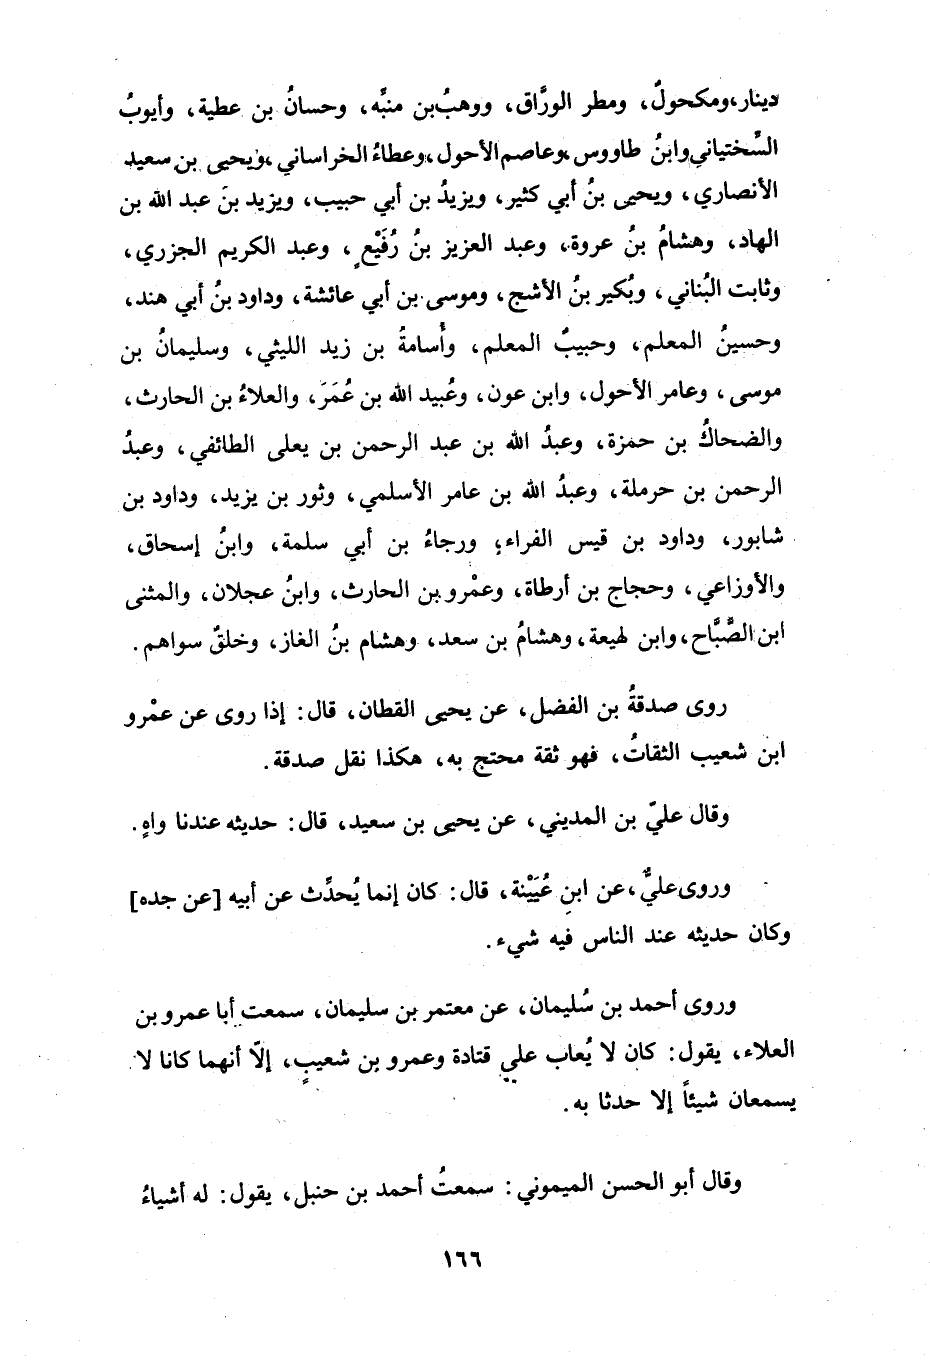 دينار، ومكحولٌ، ومطر الورَّاق، ووهبُ بن منبِّه، وحسانُ بن عطية، وأيوبُ
السِّختياني وابنُ طاووس، وعاصم الأحول، وعطاءُ الخراساني، ويحيى بن سعيد
الأنصاري، ويحيى بنُ أبي كثير، ويزيدُ بن أبي حبيب، ويزيد بنَ عبد الله بن
الهاد، وهشامُ بنُ عروة، وعبد العزيز بنُ رُفَيْعٍ، وعبد الكريم الجزري،
وثابت البُناني، وبُكير بنُ الأشج، وموسى بن أبي عائشة، وداود بنُ أبي هند،
وحسينُ المعلم، وحبيبٌ المعلم، وأُسامةُ بن زيد الليثي، وسليمانُ بن
موسى، وعامر الأحول، وابن عون، وعُبيد الله بن عُمَرَ، والعلاءُ بن الحارث،
والضحاكُ بن حمزة، وعبدُ الله بن عبد الرحمن بن يعلى الطائفي، وعبدُ
الرحمن بن حرملة، وعبدُ الله بن عامر الأسلمي، وثور بن يزيد، وداود بن
شابور، وداود بن قيس الفراء، ورجاءُ بن أبي سلمة، وابنُ إسحاق،
والأوزاعي، وحجاج بن أرطاة، وعمْرو بن الحارث، وابنُ عجلان، والمثنى
ابن الصَّبَّاح، وابن لهيعة، وهشامُ بن سعد، وهشام بنُ الغاز، وخلقٌ سواهم.
روى صدقةُ بن الفضل، عن يحيى القطان، قال: إذا روى عن عمْرو
ابن شعيب الثقاتُ، فهو ثقة محتج به، هكذا نقل صدقة.
وقال عليّ بن المديني، عن يحيى بن سعيد، قال: حديثه عندنا واهٍ.
وروى عليٌّ، عن ابنِ عُيَيْنة، قال: كان إنما يُحدِّث عن أبيه [عن جده]
وكان حديثه عند الناس فيه شيء.
وروى أحمد بن سُليمان، عن معتمر بن سليمان، سمعت أبا عمرو بن
العلاء، يقول: كان لا يُعاب على قتادة وعمرو بن شعيبٍ، إلّا أنهما كانا لا
يسمعان شيئاً إلا حدثا به.
وقال أبو الحسن الميموني: سمعتُ أحمد بن حنبل، يقول: له أشياءُ
١٦٦